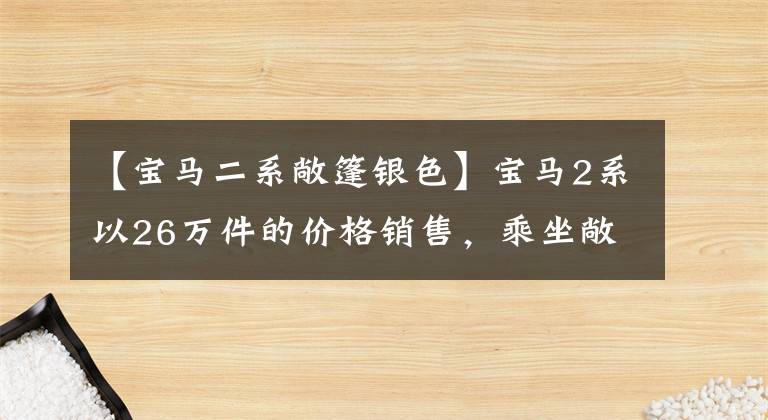 【宝马二系敞篷银色】宝马2系
以26万件的价格销售，乘坐敞